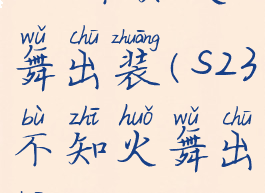 wǔ chū zhuāng
舞出装(S23
bù zhī huǒ wǔ chū
不知火舞出